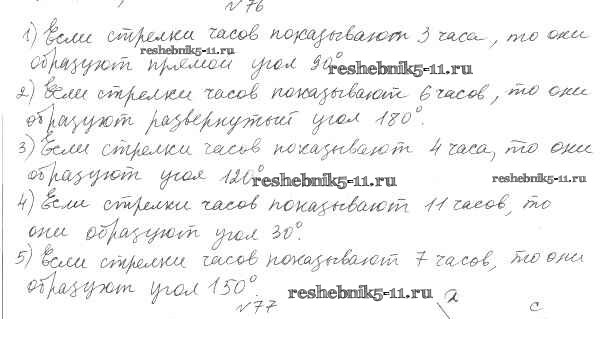 №76
1) Если стрелки часов показывают 3 часа, то они
reshebnik5-11.ru
образуют прямой угол 90°
reshebnik5-11.ru
2) Если стрелки часов показывают 6 часов, то они
образуют развернутый угол 180°.
3) Если стрелки часов показывают 4 часа, то они
образуют угол 120°
reshebnik5-11.ru
reshebnik5-11.ru
4) Если стрелки часов показывают 11 часов, то
они образуют угол 30°.
5) Если стрелки часов показывают 7 часов, то они
образуют угол 150°
№77
reshebnik5-11.ru
a
c